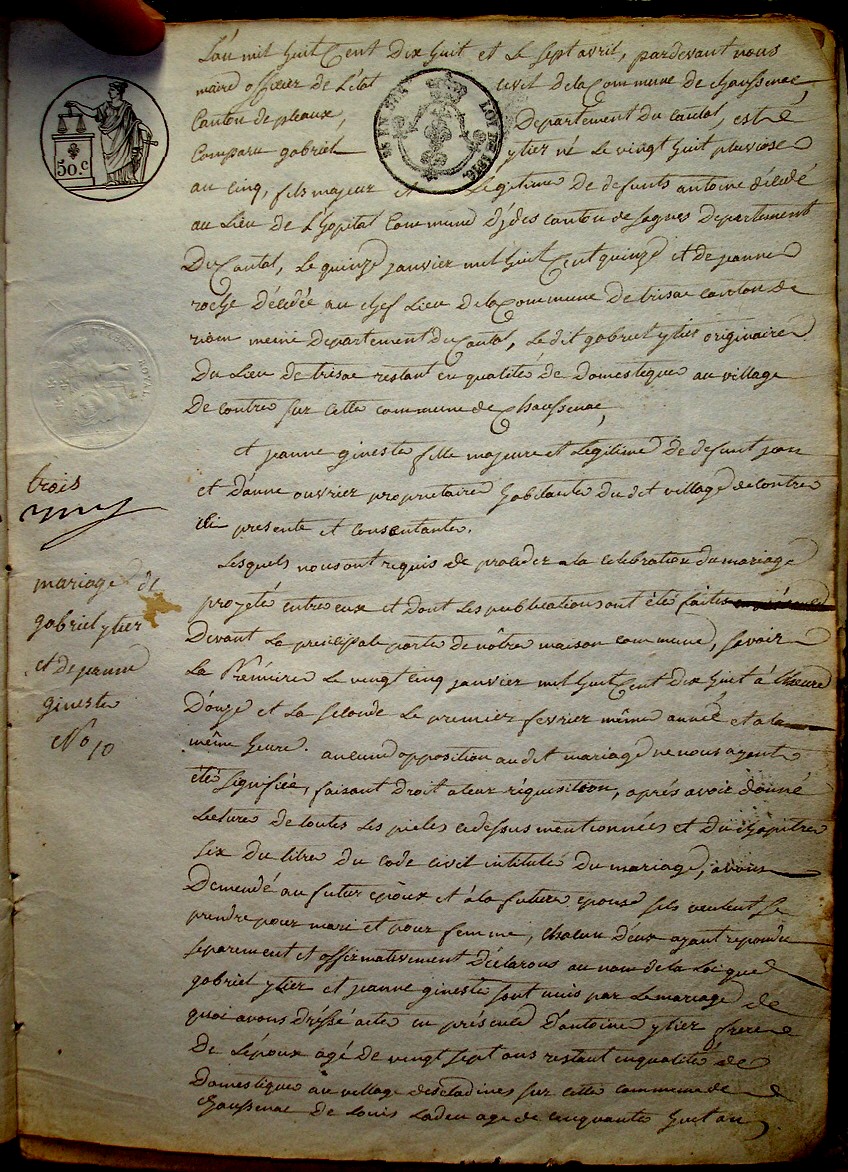 L'an mil huit Cent dix huit et Le sept avril, pardevant nous
maire officier de L'état civil de la Commune de chaussenac,
Canton de pleaux, Departement du cantal, est
Comparu gabriel ytier né Le vingt huit pluviose
au cinq, fils majeur et Légitime De defunts antoine décédé
au Lieu de L'hopital Commune d'ydes canton de saignes Departement
Du Cantal, Le quinze janvier mil huit Cent quinze et de jeanne
roche décédée au chef Lieu de la Commune de trisac canton de
riom meme departement du Cantal, Le dit gabriel ytier originaire
Du Lieu de trisac restant en qualité de Domestique au village
De contre sur cette commune de Chaussenac,
Et jeanne gineste fille majeure et Légitime de defunt jean
et d'anne ouvrier propriétaire habitante du dit village de contre
ici presente et consentante.
Lesquels nous ont requis de proceder a la celebration du mariage
projeté entre eux et dont Les publications ont été faites
Devant La principale porte de nôtre maison commune, savoir
La Premiere Le vingt cinq janvier mil huit Cent dix huit à L'heure
D'onze et La seconde Le premier fevrier même année et a la
même heure. aucune opposition au dit mariage ne nous ayant
été signifiée, faisant Droit a leur réquisition, aprés avoir donné
Lecture de toutes Les pieces cidessus mentionnées et du chapitre
six du titre du code civil intitulé du mariage, avons
Demendé au futur epoux et à la future epouse s'ils veulent se
prendre pour mari et pour femme, chacun d'eux ayant repondu
separement et affirmativement Déclarons au nom de la Loi que
gabriel ytier et jeanne gineste sont unis par Le mariage de
quoi avons Dréssé acte en présence D'antoine ytier frere
De L'époux agé de vingt sept ans restant en qualité de
Domestique au village d'escladines sur cette commune de
chaussenac De Louis Ladeu age de cinquante huit ans
50.c
LOI DE 1816
TIMBRE ROYAL
trois
mariage de
gabriel ytier
et de jeanne
gineste
No 10